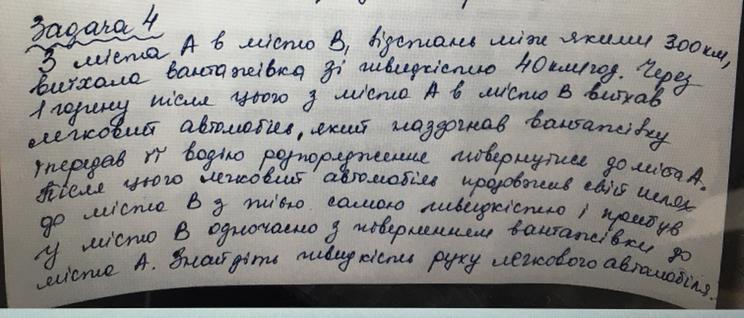 Задача 4
З міста А в місто В, відстань між якими 300км,
виїхала вантажівка зі швидкістю 40км/год. Через
1 годину після цього з міста А в місто В виїхав
легковий автомобіль, який наздогнав вантажівку
і передав її водію розпорядження повернутися до міста А.
Після цього легковий автомобіль продовжив свій шлях
до міста В з тією самою швидкістю і прибув
у місто В одночасно з поверненням вантажівки до
міста А. Знайдіть швидкість руху легкового автомобіля.